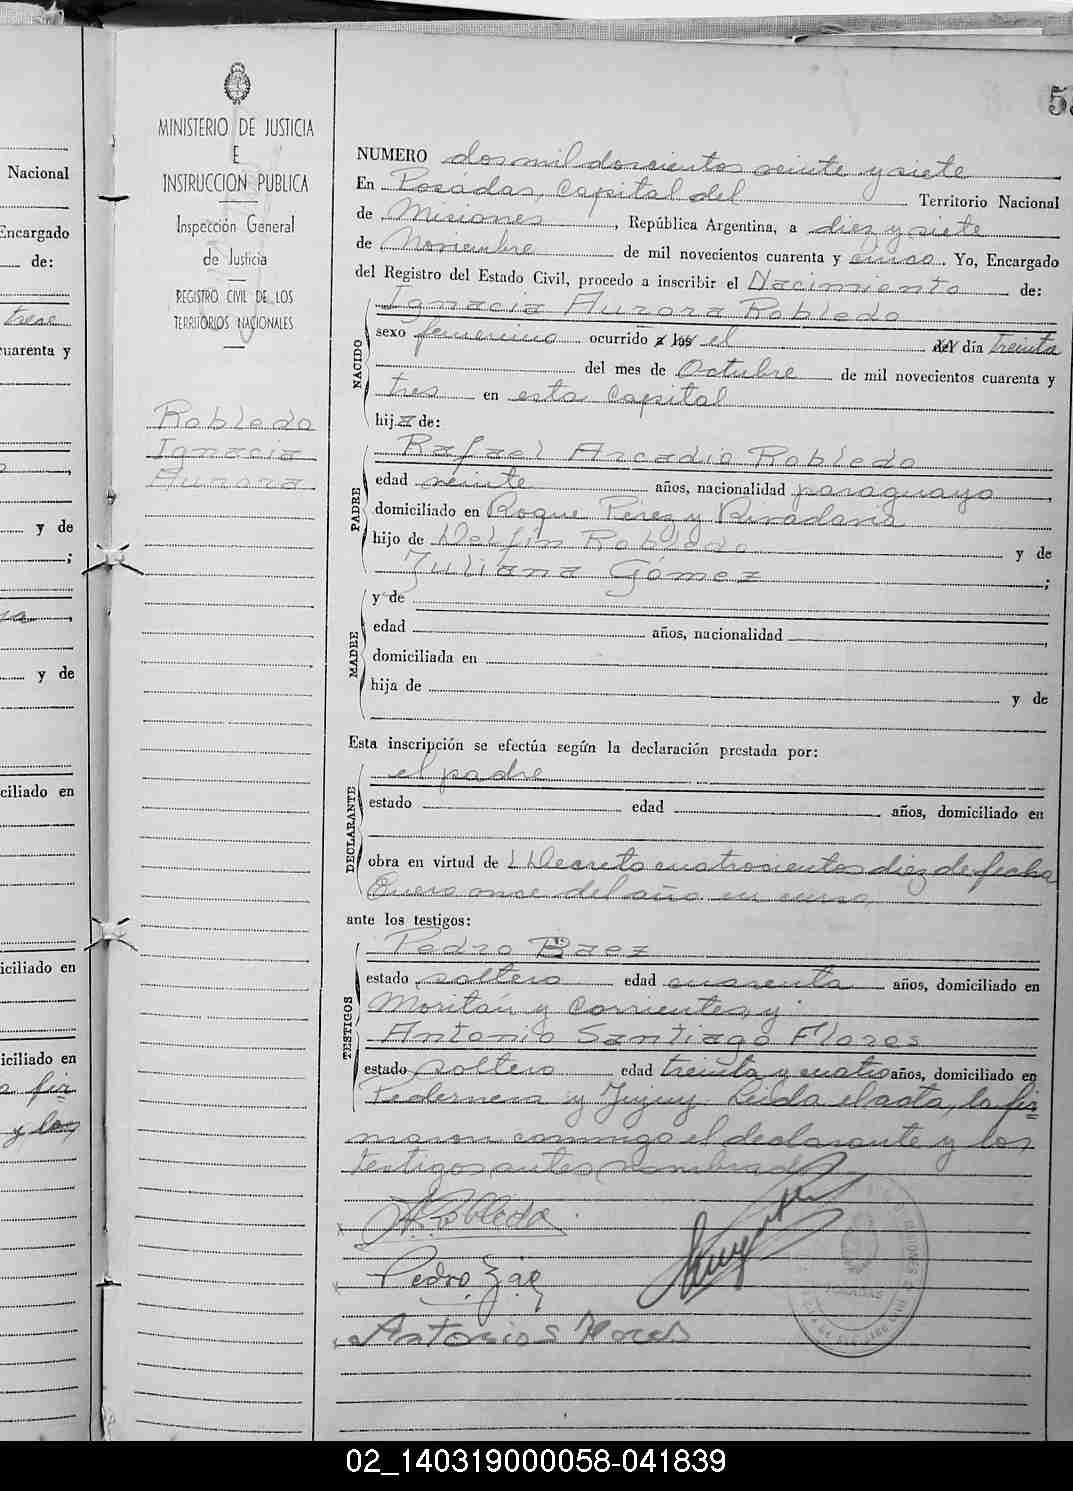 5
MINISTERIO DE JUSTICIA
E
INSTRUCCION PUBLICA
Inspección General
de Justicia
REGISTRO CIVIL DE LOS
TERRITORIOS NACIONALES
Robledo
Ignacia
Aurora
Nacional
Encargado
de:
trese
cuarenta y
y de
;
y de
ciliado en
iciliado en
iciliado en
a fir
y los
NUMERO dos mil doscientos veinte y siete
En Posadas, Capital del Territorio Nacional
de Misiones, República Argentina, a diez y siete
de Noviembre de mil novecientos cuarenta y cinco. Yo, Encargado
del Registro del Estado Civil, procedo a inscribir el Nacimiento de:
NACIDO
Ignacia Aurora Robledo
sexo femenino ocurrido a las el del día treinta
del mes de Octubre de mil novecientos cuarenta y
tres en esta Capital
hija de:
PADRE
Rafael Arcadio Robledo
edad veinte años, nacionalidad paraguayo,
domiciliado en Roque Pérez y Rivadavia
hijo de Delfín Robledo y de
Juliana Gómez;
MADRE
y de
edad años, nacionalidad,
domiciliada en
hija de y de
Esta inscripción se efectúa según la declaración prestada por:
DECLARANTE
el padre
estado edad años, domiciliado en
obra en virtud de Decreto cuatrosientos diez de fecha
Enero onse del año en curso,
ante los testigos:
TESTIGOS
Pedro Baez
estado soltero edad cuarenta años, domiciliado en
y Corrientes, y
Antonio Santiago Flores
estado soltero edad treinta y cuatro años, domiciliado en
Pedernera y Jujuy. Leida el acta, la fir=
maron conmigo el declarante y los
testigos antes nombrados
A. Robledo
Pedro
Antonio S Flores
POSADAS
02_140319000058-041839